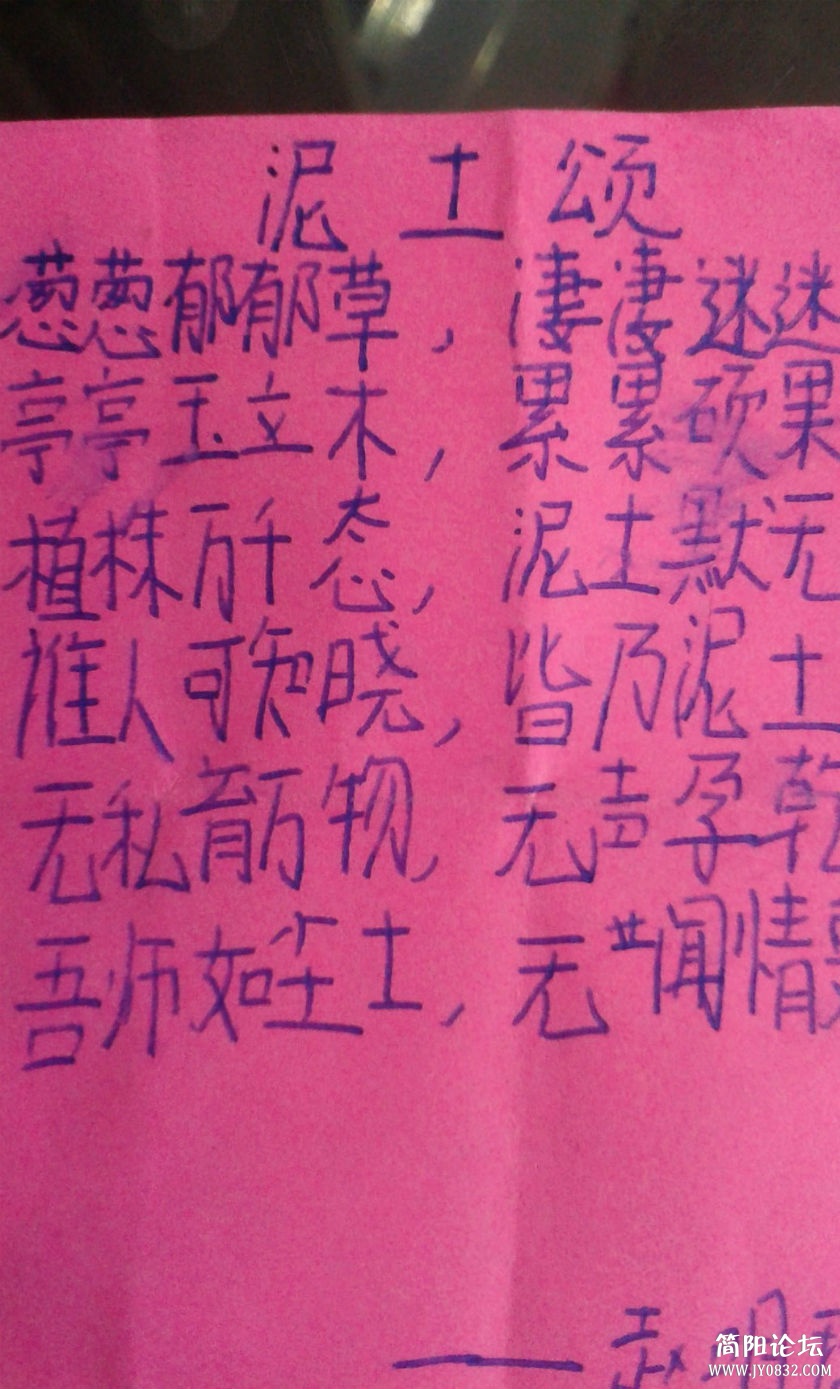 泥土颂
葱葱郁郁草，凄凄迷迷
亭亭玉立木，累累硕果
植株万千态，泥土默无
谁人可知晓，皆乃泥土
无私育万物，无声孕乾
吾师如尘土，无业闻情
——赵明
简阳论坛
WWW.JY0832.COM